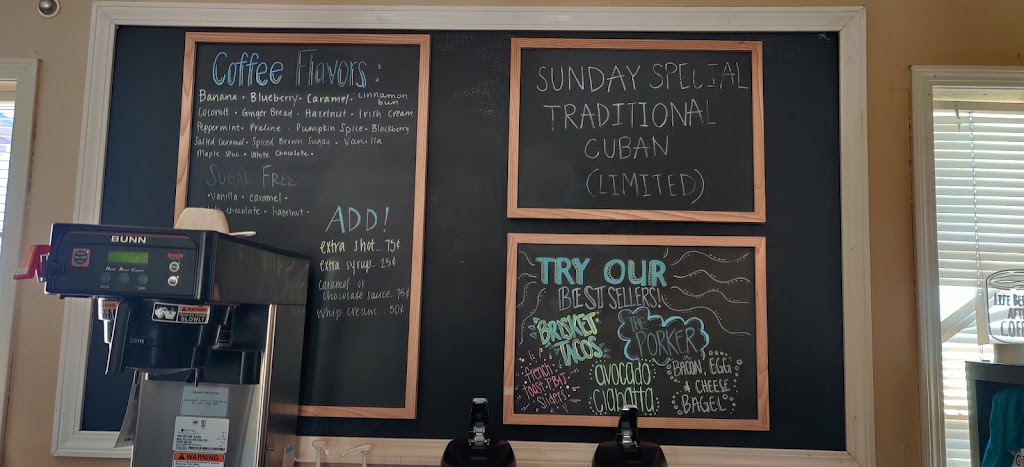 Coffee Flavors:
Banana · Blueberry · Caramel · cinnamon bun
Coconut · Ginger Bread · Hazelnut · Irish Cream
Peppermint · Praline · Pumpkin Spice · Blackberry
Salted Caramel · Spiced Brown Sugar · Vanilla
Maple Spice · White Chocolate ·
SUGAR FREE
· Vanilla · caramel ·
chocolate · hazelnut ·
ADD!
extra shot... 75¢
extra syrup... 25¢
caramel or
chocolate sauce... 75¢
whip creame... 50¢
SUNDAY SPECIAL
TRADITIONAL
CUBAN
(LIMITED)
TRY OUR
BEST SELLERS!
BRISKET
TACOS
THE
PORKER
french
toast PB&J
Sliders
avocado
ciabatta
BACON, EGG
& CHEESE
BAGEL
BUNN
WARNING
SLOWLY
COFFEE
WARNING
LIFE BE
AFT
COFF